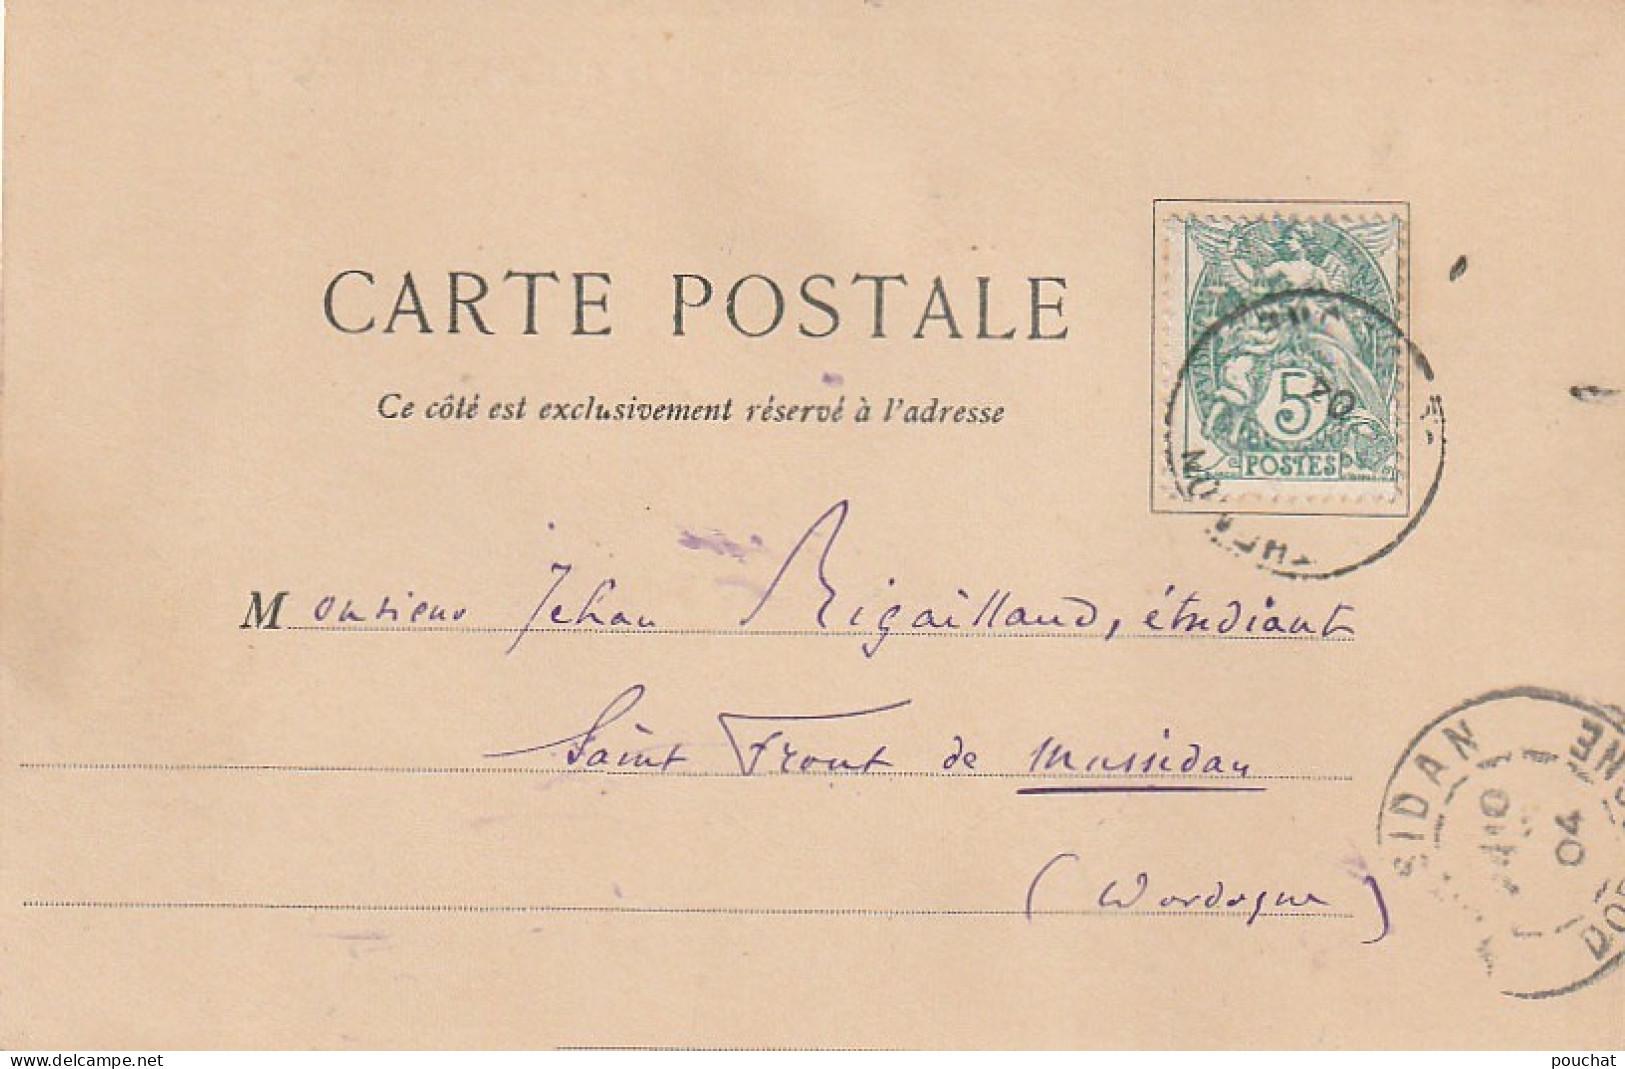 CARTE POSTALE
Ce côté est exclusivement réservé à l'adresse
5
POSTES
04
THENON
Monsieur Jehan Rigailland, étudiant
Saint Front de Mussidan
(Dordogne)
SIDAN
04
pouchat